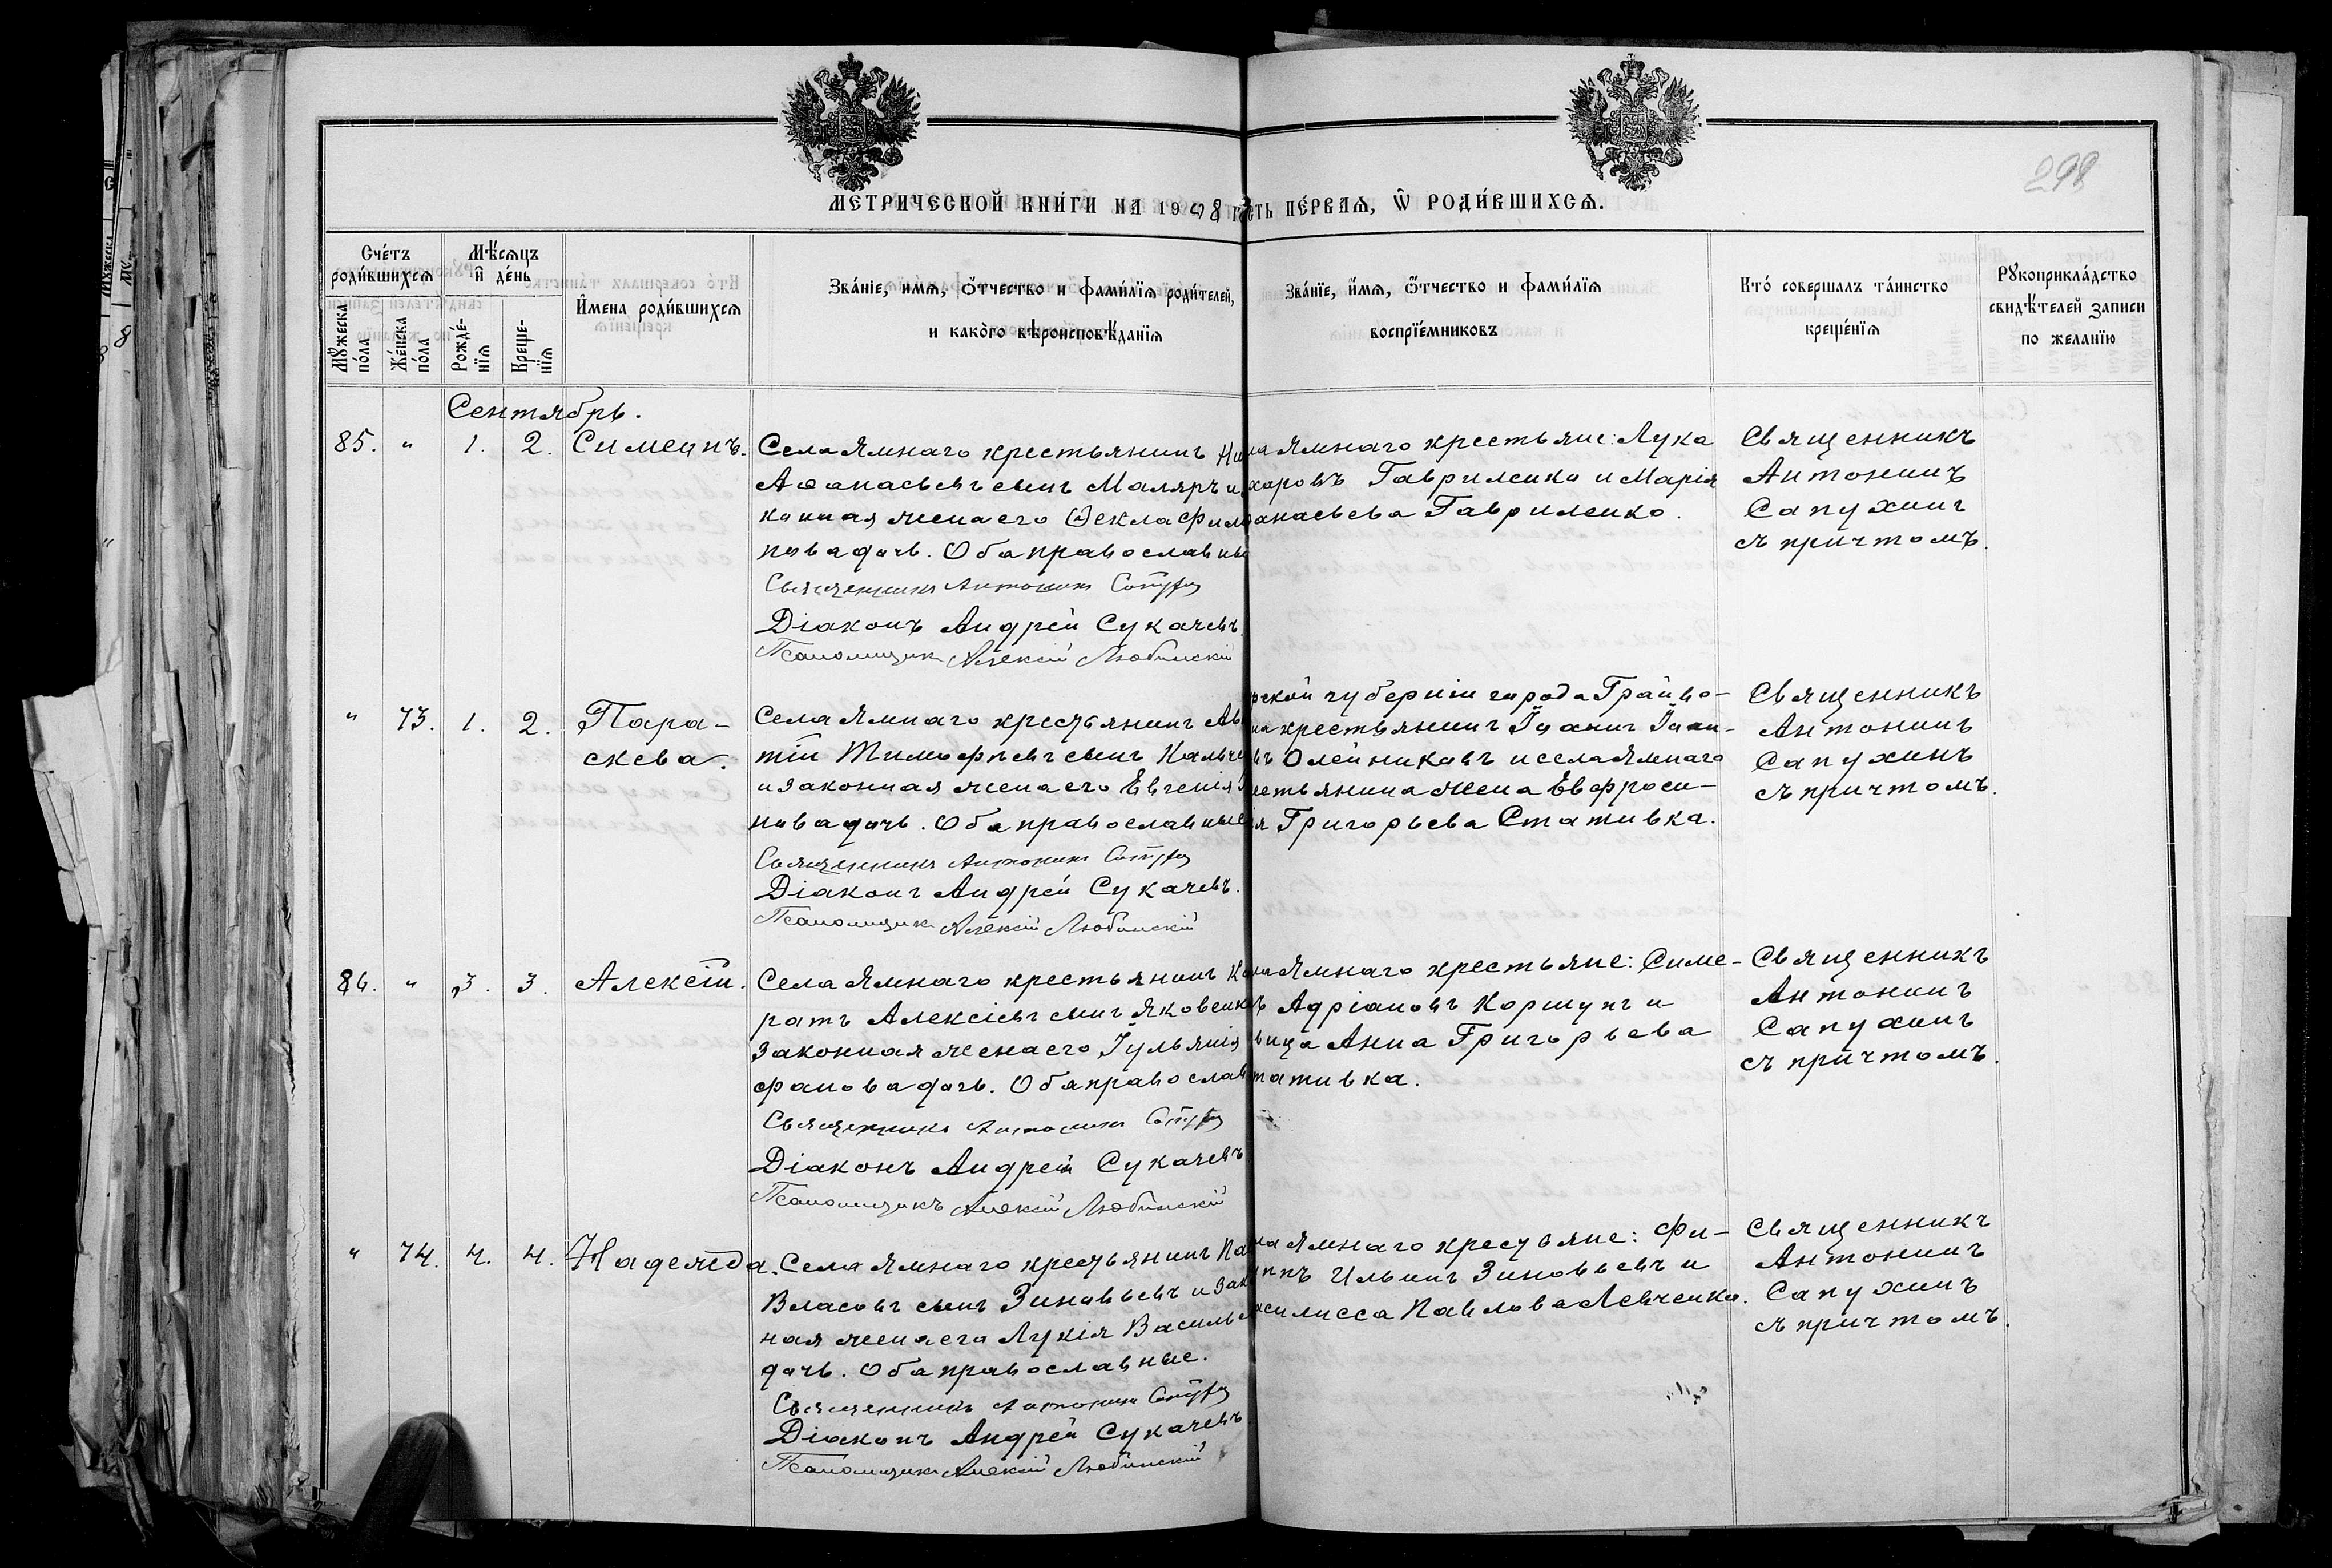 298
МЕТРИЧЕСКОЙ КНИ́ГИ НА 1908 г
сть ПЕ́РВАѦ, Ѡ҆ РОДИ́ВШИХСѦ.
Сче́тъ роди́вшихсѧ
Мꙋ́жеска по́ла
Же́нска по́ла
Мѣ́сѧцъ и҆ де́нь
Рожде́-нїѧ
Креще-нїѧ
И҆мена роди́вшихсѧ
Зва́нїе, имѧ, ѻ҆́тчество и фами́лїѧ роди́телей,
и како́го вѣроисповѣ́данїѧ
Зва́нїе, и҆́мѧ, ѻ҆́тчество и фами́лїѧ
воспрїе́мниковъ
Кто́ совершалъ та́инство
креще́нїѧ
Рꙋкоприкла́дство
свидѣ́телей записи
по желанїю
Сентябрь.
85. " 1. 2. Симеонъ.
Села Ямнаго крестьянинъ
Аѳанасьевъ сынъ Маляръ и
конная жена его Ѳекла Фили
пова дочь. Оба православны
Священникъ Антонинъ
Діаконъ Андрей Сукачевъ.
Псаломщикъ Алексій Любимскій
ла Ямнаго крестьяне: Лука
харовъ Гавриленко и Марія
анасьева Гавриленко.
Священникъ
Антонинъ
Сапухинъ
съ причтомъ.
" 73. 1. 2. Пара-
скева.
Села Ямнаго крестьянинъ Ав
тій Тимофѣевъ сынъ Кальче
и законная жена его Евгенія
нова дочь. Оба православные
Священникъ Антонинъ
Діаконъ Андрей Сукачевъ.
Псаломщикъ Алексій Любимскій
рской губерніи города Грайво-
на крестьянинъ Іоаннъ Іоан-
въ Олейниковъ и села Ямнаго
естьянина жена Евфроси-
ія Григорьева Стативка.
Священникъ
Антонинъ
Сапухинъ
съ причтомъ.
86. " 3. 3. Алексій.
Села Ямнаго крестьянинъ Ко
ратъ Алексіевъ сынъ Яковенко
законная жена его Іульянія
фанова дочь. Оба православ
Священникъ Антонинъ
Діаконъ Андрей Сукачевъ
Псаломщикъ Алексій Любимскій
ла Ямнаго крестьяне: Симе-
ъ Адріановъ Коршунъ и
вица Анна Григорьева
тативка.
Священникъ
Антонинъ
Сапухинъ
съ причтомъ.
" 74. 4. 4. Надежда.
Села Ямнаго крестьянинъ Па
Власовъ сынъ Зиновьевъ и зак
ная жена его Лукія Василье
дочь. Оба православные.
Священникъ Антонинъ
Діаконъ Андрей Сукачевъ
Псаломщикъ Алексій Любимскій
ла Ямнаго крестьяне: Фи-
ппъ Ильинъ Зиновьевъ и
асилисса Павлова Левченко.
Священникъ
Антонинъ
Сапухинъ
съ причтомъ.